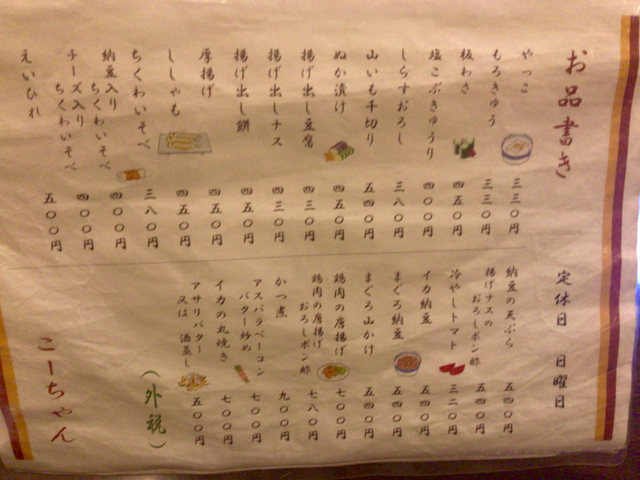 お品書き
定休日　日曜日
やっこ　三三〇円
もろきゅう　三三〇円
板わさ　四五〇円
塩こぶきゅうり　四〇〇円
しらすおろし　三八〇円
山いも千切り　五四〇円
ぬか漬け　四五〇円
揚げ出し豆腐　四三〇円
揚げ出しナス　四三〇円
揚げ出し餅　四五〇円
厚揚げ　四五〇円
ししゃも　四五〇円
ちくわいそべ　三八〇円
納豆入り
ちくわいそべ　四〇〇円
チーズ入り
ちくわいそべ　四〇〇円
えいひれ　五〇〇円
納豆の天ぷら　五四〇円
揚げナスの
おろしポン酢　五四〇円
冷やしトマト　三二〇円
イカ納豆　五四〇円
まぐろ納豆　五四〇円
まぐろ山かけ　五四〇円
鶏肉の唐揚げ　七〇〇円
鶏肉の唐揚げ
おろしポン酢　七八〇円
かつ煮　九〇〇円
アスパラベーコン
バター炒め　七〇〇円
イカの丸焼き　七〇〇円
アサリバター
又は　酒蒸し　五〇〇円
（外税）
こーちゃん